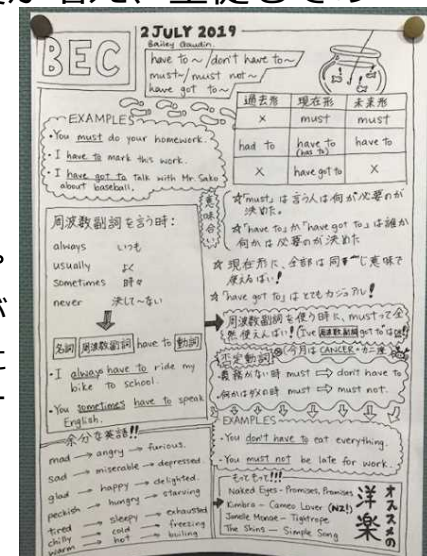 BEC
2 JULY 2019
Bailey Gaudin.
have to ~ / don't have to ~
must ~ / must not ~
have got to ~
過去形 現在形 未来形
× must must
had to have to (has to) have to
× have got to ×
EXAMPLES
・You must do your homework.
・I have to mark this work.
・I have got to talk with Mr. Sako
about baseball.
意味合い
☆「must」は言う人は何が必要のが
決めた。
☆「have to」か「have got to」は誰か
何かは必要のが決めた
☆現在形に、全部は同じ意味で
使えるはい!
☆「have got to」はとてもカジュアル!
周波数副詞を言う時:
always いつも
usually よく
sometimes 時々
never 決して~ない
名詞 周波数副詞 have to 動詞
・I always have to ride my
bike to school.
・You sometimes have to speak
English.
周波数副詞を使う時に、mustって全
然使えんはい!
否定動詞
今月は CANCER・カニ座
・義務がない時 must ⇨ don't have to
・何かはダメの時 must ⇨ must not.
EXAMPLES
・You don't have to eat everything.
・You must not be late for work.
余分な英語!!
mad → angry → furious.
sad → miserable → depressed.
glad → happy → delighted.
peckish → hungry → starving
tired → sleepy → exhausted
chilly → cold → freezing
warm → hot → boiling
もって!!!
Naked Eyes - Promises, Promises
Kimbra - Cameo Lover (NZ!)
Janelle Monae - Tightrope
The Shins - Simple Song
オススメの
洋楽